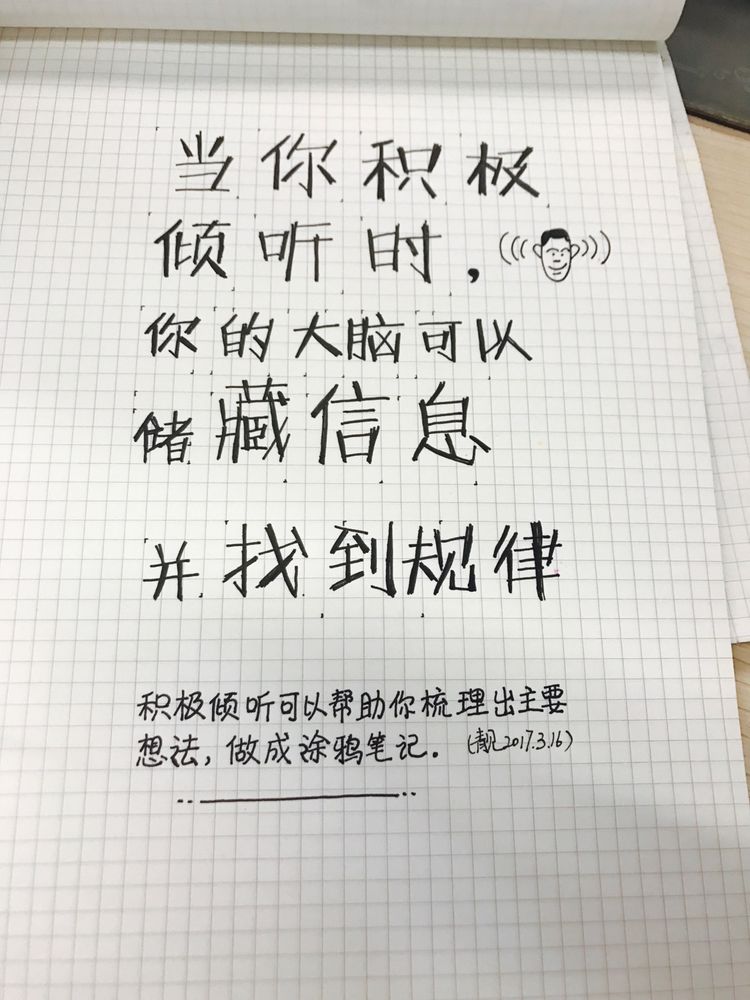 当你积极
倾听时，
你的大脑可以
储藏信息
并找到规律
积极倾听可以帮助你梳理出主要
想法，做成涂鸦笔记。（靓2017.3.16）